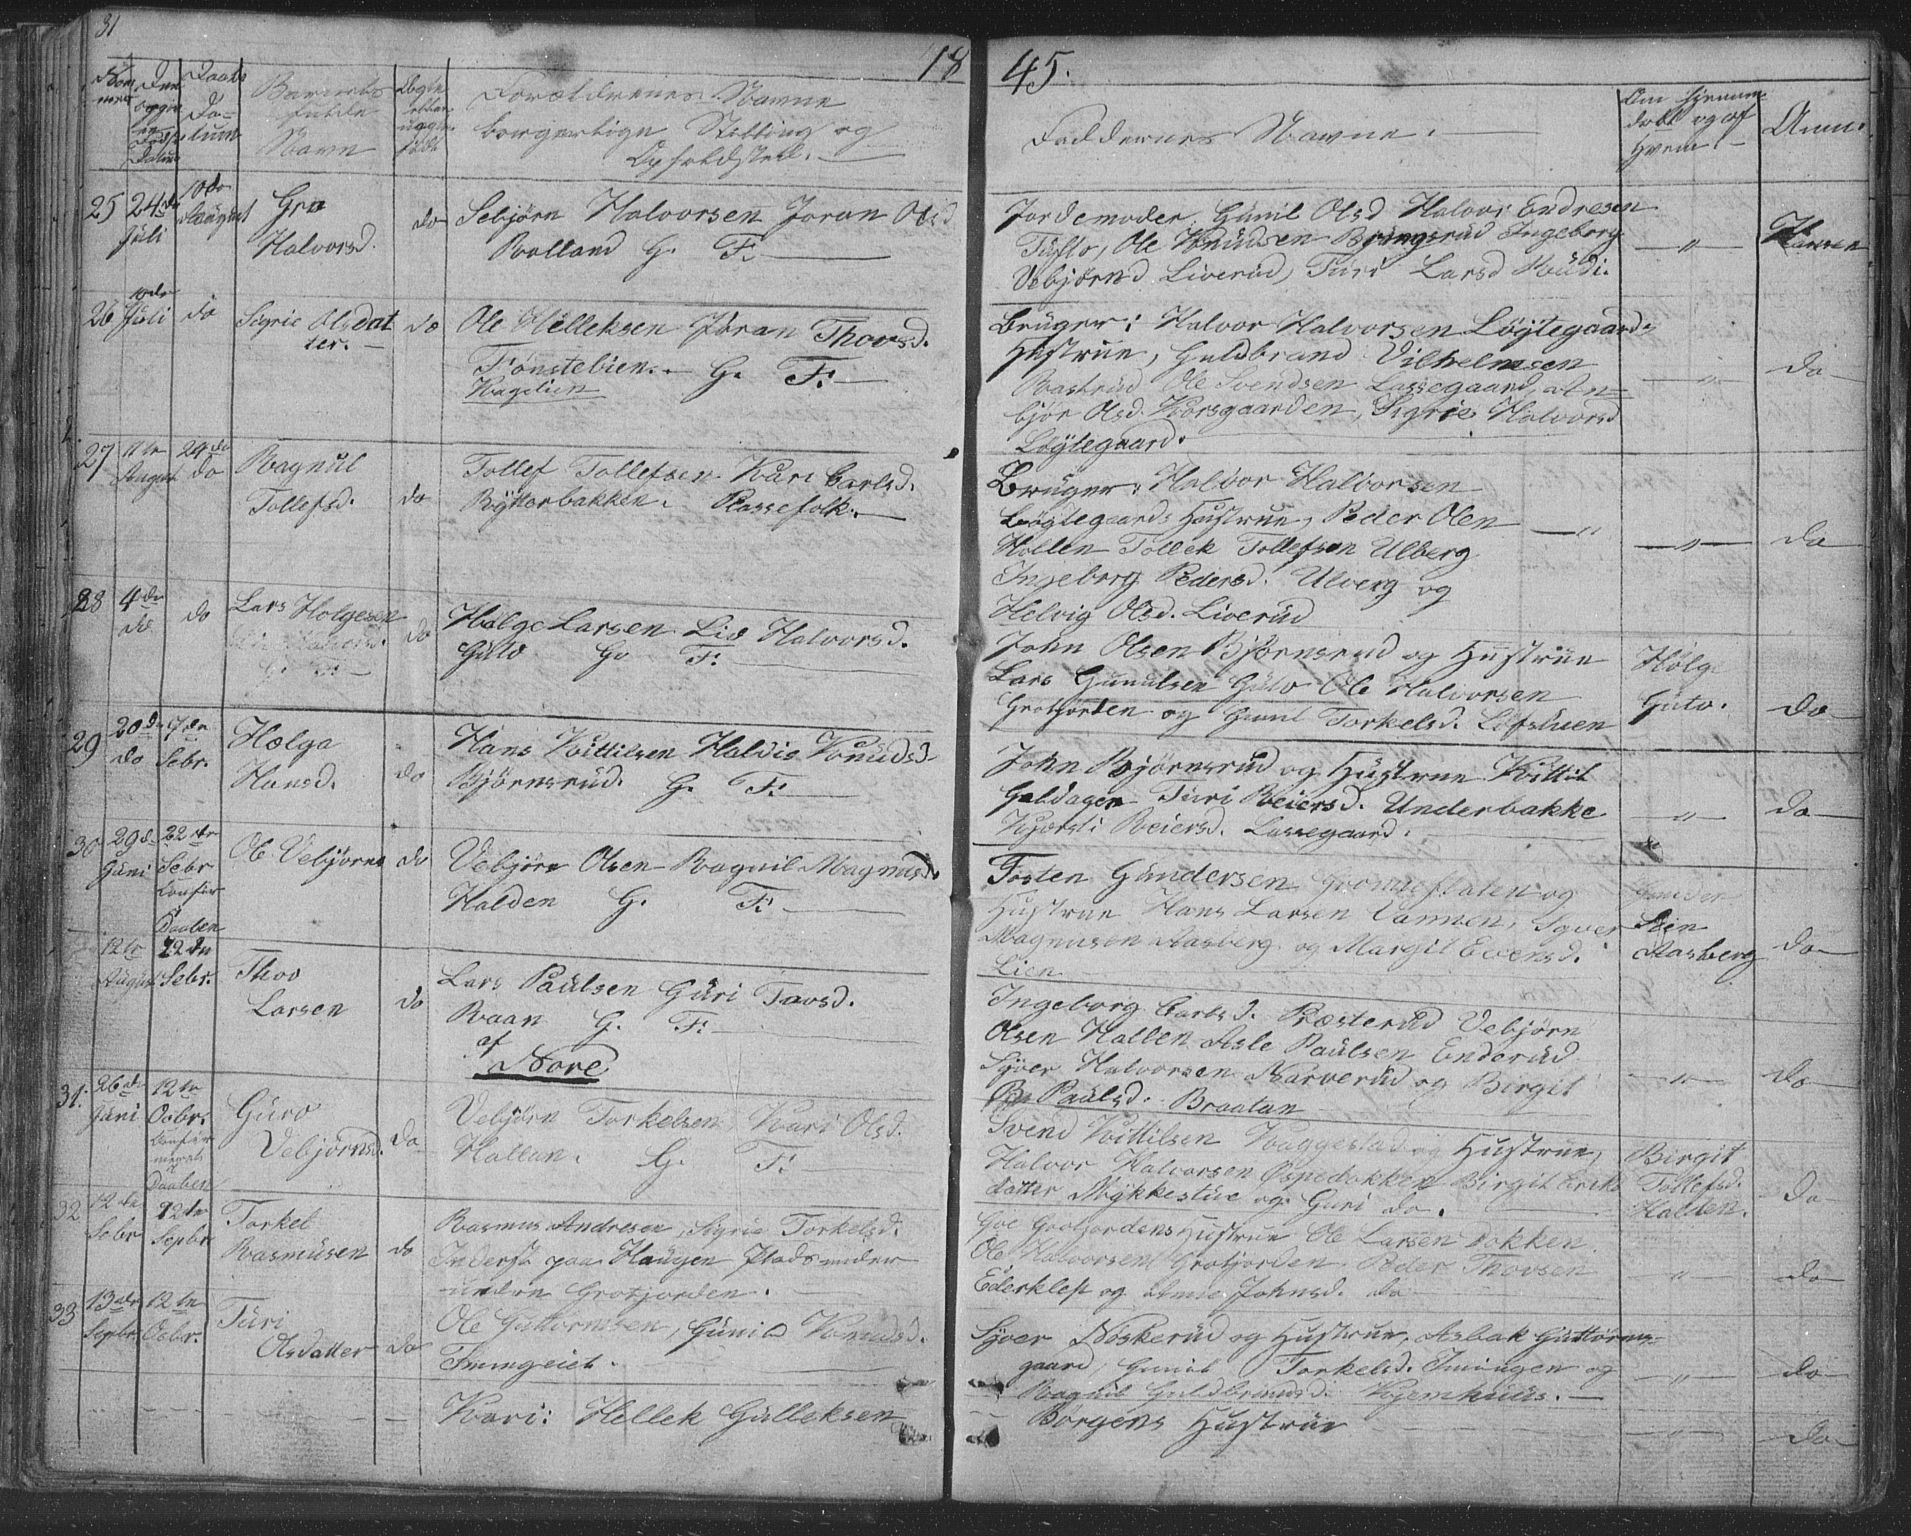 31
1845.
Nommer
Den opgivne Føds. Datum
Daabs Datum
Barnets fulde Navn
Ægte eller uægte født
Forældrenes Navne
borgerlige Stilling og
Opholdsted.
Faddernes Navne.
Om hjemmedøbt og af Hvem.
Anm.
25 24de Juli 10de August Gro Halvorsd. do
Sebjørn Halvorsen Joran Olsd
Rolland G. F.
Jordemoder Gunil Olsd Halvor Endresen
Tufto, Ole Knudsen Bringsrud Ingeborg
Vebjørnsd Liverud, Turi Larsd Ruudi.
26 10de Juli do Sigrie Olsdatter. do
Ole Helleksen Joran Thovsd.
Fønstebien. G. F.
Bruger: Halvor Halvorsen Løytegaards
Hustrue, Guldbrand Vilhelmsen
Rastrud Ole Svendsen Lassegaard,
bjør Olsd. Korsgaarden, Sigrie Halvorsd
Løytegaard.
do
27 11te August 24de do Ragnil Tollefsd. do
Tollef Tollefsen Kari Carlsd.
Rytterbakken. Plassefolk.
Bruger, Halvor Halvorsen
Løytegaards Hustrue, Peder Olen
Hollen Tollek Tollefsen Ulberg
Ingeborg Pedersd. Ulverg og
Helvig Olsd. Liverud
do
28 4de do Lars Holgesen do
Holge Larsen Liv Halvorsd.
Gulv G. F.
John Olsen Bjørnsrud og Hustrue
Lars Gunulsen Gulv Ole Halvorsen
Grotjorden og Gunil Torkelsd. Løfsluen
Holg
Guto.
do
29 20de do 7de Sebr. Hælga Hansd. do
Hans Kittilsen Haldis Knudsd
Bjørnsrud. G. F.
John Bjørnsrud og Hustrue Kittil
Guldagen Turi Reiersd. Underbakke
Kjersti Reiersd. Lassegaard.
do
30 29de Juni 22de Sebr Confir Daaben Ole Vebjørns do
Vebjørn Olsen Ragnil Magnusd.
Halden G. F.
Tosten Gundersen og
Hustrue Hans Larsen Vannen, Syver
Magnusen Aasberg og Margit Evensd.
Lien
Gunder
Aasberg
do
12te August 22de Sebr. Thov Larsen do
Lars Paulsen Guri Tovsd.
Raan G. F.
af Nore
Ingeborg Carlsd. Præsterud Vebjørn
Olsen Hallen Asle Paulsen Enderud
Syver Halvorsen Narverud og Birgit
Paulsd. Braatan
do
31. 26de Juni 12te Ocbr. Daaben Guro Vebjørnsd. do
Vebjørn Torkelsen Kari Olsd.
Hallan. G. F.
Svend Kittilsen Kaggestad og Hustrue,
Halvor Halvorsen Øspedokken Birgit Eriks
datter Mykkestue og Guri do.
Birgit
Tollefsd.
Halden.
do
32 12te Sebr 22de Sepbr. Torkel Rasmusen do
Rasmus Andresen, Sigrie Torkelsd.
Inderst paa Haugen Plads under
undre Grotjorden.
Grotjordens Hustrue Ole Larsen Dokken
Ole Halvorsen Grotjorden Peder Thovsen
Ederklep og Johnsd. do
do
33 13de Sepbr. 12te Ocbr. Turi Olsdatter do
Ole Guttormsen, Gunil Knudsd.
Immgeiet.
Syver Noskerud og Hustrue, Asbak Guttorms
gaard, Gunil Torkelsd. Imingen og
Ragnil Guldbrandsd. Kjemhuus.
do
Kari: Hellek Gulleksen
Børgens Hustrue
do